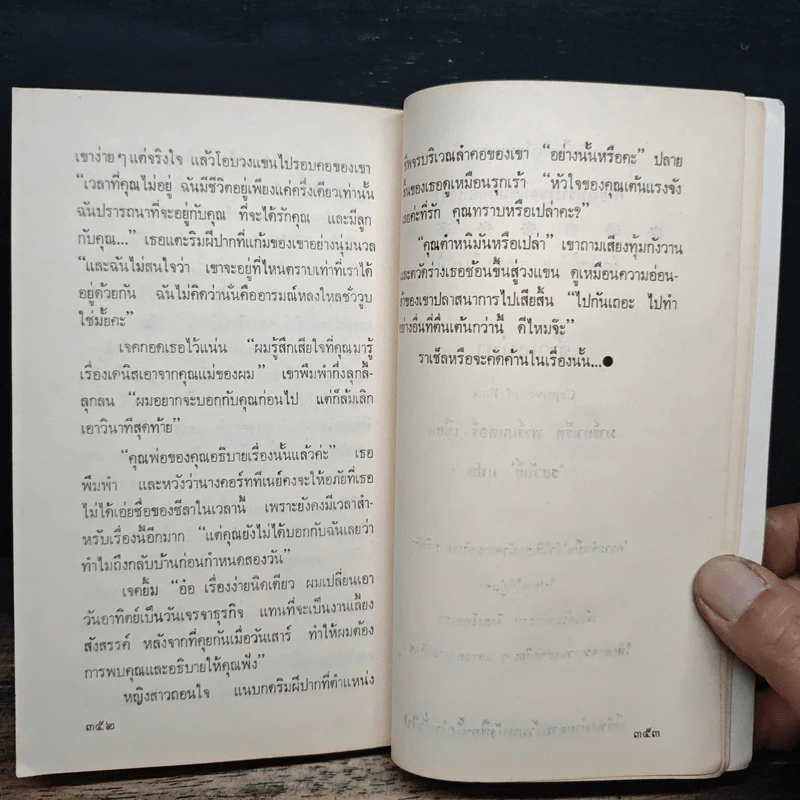 เขาง่ายๆ แต่จริงใจ แล้วโอบวงแขนไปรอบคอของเขา
“เวลาที่คุณไม่อยู่ ฉันมีชีวิตอยู่เพียงแค่ครึ่งเดียวเท่านั้น
ฉันปรารถนาที่จะอยู่กับคุณ ที่จะได้รักคุณ และมีลูก
กับคุณ...” เธอแตะริมฝีปากที่แก้มของเขาอย่างนุ่มนวล
“และฉันไม่สนใจว่า เขาจะอยู่ที่ไหนตราบเท่าที่เราได้
อยู่ด้วยกัน ฉันไม่คิดว่านั่นคืออารมณ์หลงใหลชั่ววูบ
ใช่มั้ยคะ”
เจคกอดเธอไว้แน่น “ผมรู้สึกเสียใจที่คุณมารู้
เรื่องเดนิสเอาจากคุณแม่ของผม” เขาพึมพำกึ่งลุกลี้-
ลุกลน “ผมอยากจะบอกกับคุณก่อนไป แต่ก็ล้มเลิก
เอาวินาทีสุดท้าย”
“คุณพ่อของคุณอธิบายเรื่องนั้นแล้วค่ะ” เธอ
พึมพำ และหวังว่านางคอร์ททีเนย์คงจะให้อภัยที่เธอ
ไม่ได้เอ่ยชื่อของชีลาในเวลานี้ เพราะยังคงมีเวลาสำ-
หรับเรื่องนี้อีกมาก “แต่คุณยังไม่ได้บอกกับฉันเลยว่า
ทำไมถึงกลับบ้านก่อนกำหนดสองวัน”
เจคยิ้ม “อ๋อ เรื่องง่ายนิดเดียว ผมเปลี่ยนเอา
วันอาทิตย์เป็นวันเจรจาธุรกิจ แทนที่จะเป็นงานเลี้ยง
สังสรรค์ หลังจากที่คุยกันเมื่อวันเสาร์ ทำให้ผมต้อง
การพบคุณและอธิบายให้คุณฟัง”
หญิงสาวถอนใจ แนบกดริมฝีปากที่ตำแหน่ง
๓๕๒
ชีพจรบริเวณลำคอของเขา “อย่างนั้นหรือคะ” ปลาย
ของเธอดูเหมือนรุกเร้า “หัวใจของคุณเต้นแรงจัง
เลยค่ะที่รัก คุณทราบหรือเปล่าคะ?”
“คุณตำหนิมันหรือเปล่า” เขาถามเสียงทุ้มกังวาน
และตวัดร่างเธอช้อนขึ้นสู่วงแขน ดูเหมือนความอ่อน-
ของเขาปลาสนาการไปเสียสิ้น “ไปกันเถอะ ไปทำ
อย่างอื่นที่ตื่นเต้นกว่านี้ ดีไหมจ๊ะ”
ราเช็ลหรือจะคัดค้านในเรื่องนั้น...●
๓๕๓